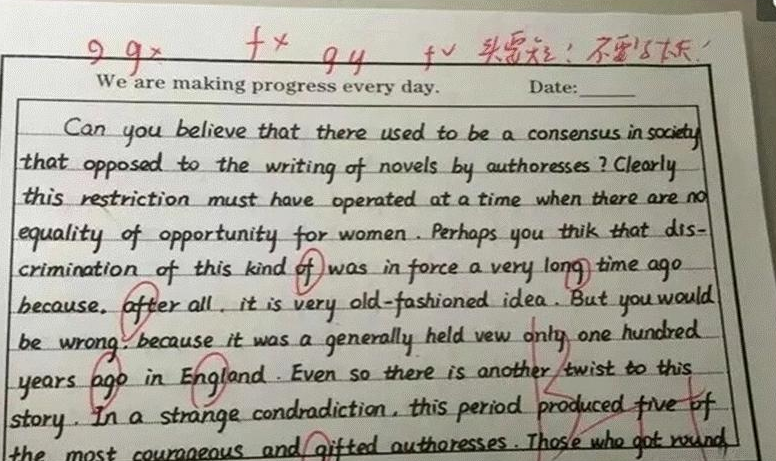 9 9x fx 9y fv 头要短！不要写太长！
We are making progress every day. Date:
Can you believe that there used to be a consensus in society
that opposed to the writing of novels by authoresses ? Clearly
this restriction must have operated at a time when there are no
equality of opportunity for women . Perhaps you thik that dis-
crimination of this kind of was in force a very long time ago
because, after all , it is very old-fashioned idea . But you would
be wrong, because it was a generally held vew only one hundred
years ago in England . Even so there is another twist to this
story . In a strange condradiction , this period produced five of
the most courageous and gifted authoresses . Those who got round